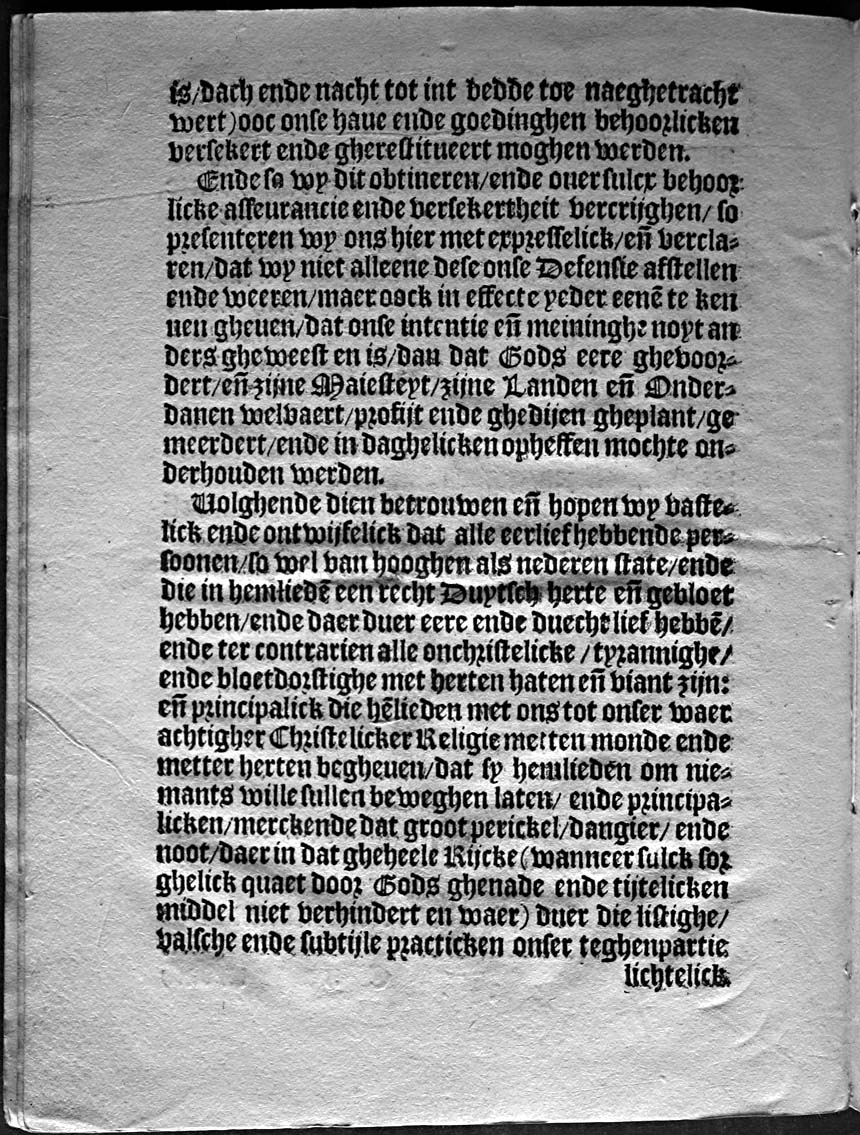 is/dach ende nacht tot int bedde toe naeghetracht
wert)ooc onse haue ende goedinghen behoorlicken
versekert ende gherestitueert moghen werden.
Ende so wy dit obtineren/ende ouer sulcx behoor
licke asseurancie ende versekertheit vercrijghen/ so
presenteren wy ons hier met expresselick/eñ vercla⸗
ren/dat wy niet alleene dese onse Defensie afstellen
ende weeren/maer oock in effecte yeder eenē te ken
nen gheuen/dat onse intentie eñ meininghe noyt an
ders gheweest en is/dan dat Gods eere ghevoor⸗
dert/eñ zijne Maiesteyt/zijne Landen eñ Onder⸗
danen welvaert/profijt ende ghedijen gheplant/ge
meerdert/ende in daghelicken opheffen mochte on⸗
derhouden werden.
Volghende dien betrouwen eñ hopen wy vaste⸗
lick ende ontwijfelick dat alle eerliefhebbende per⸗
soonen/so wel van hooghen als nederen state/ende
die in hemliedē een recht Duytsch herte eñ gebloet
hebben/ende daer duer eere ende duecht lief hebbē/
ende ter contrarien alle onchristelicke /tyrannighe/
ende bloetdorstighe met herten haten eñ viant zijn:
eñ principalick die hēlieden met ons tot onser waer
achtigher Christelicker Religie metten monde ende
metter herten begheuen/dat sy hemlieden om nie⸗
mants wille sullen beweghen laten/ ende principa⸗
licken/merckende dat groot perickel/dangier/ ende
noot/daer in dat gheheele Rijcke (wanneer sulck sor
ghelick quaet door Gods ghenade ende tijtelicken
middel niet verhindert en waer) duer die listighe/
valsche ende subtijle practicken onser teghenpartie
lichtelick